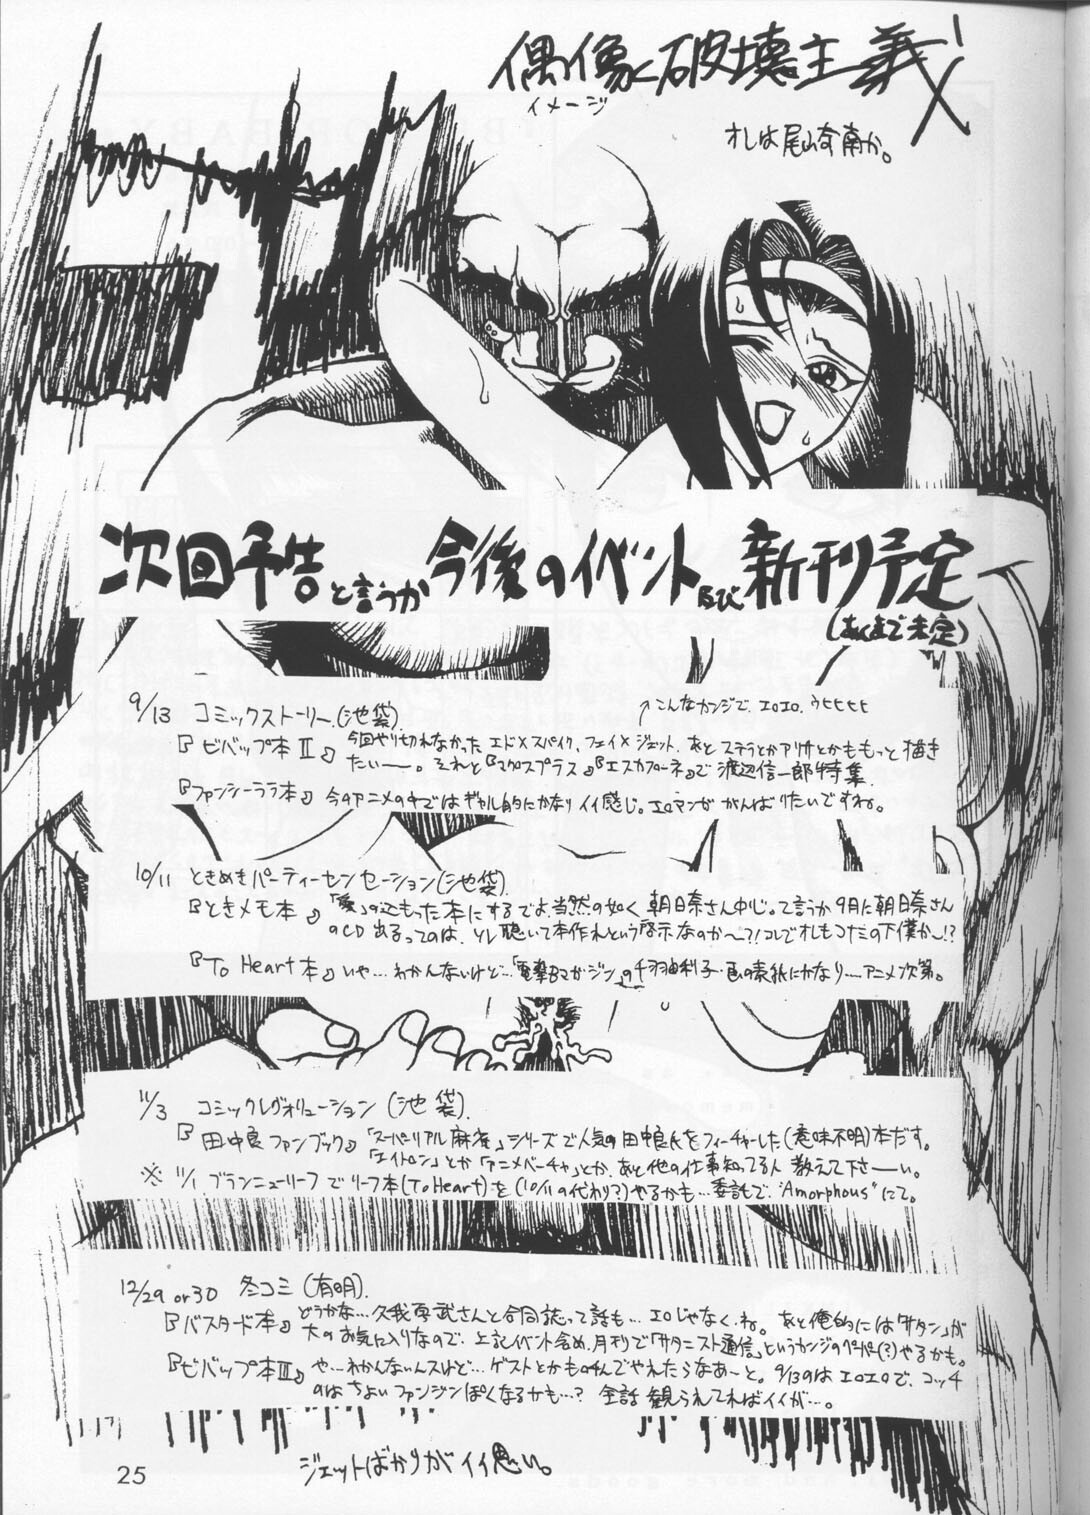 偶像破壊主義!
イメージ
オレは尾山奈南か。
次回予告と言うか今後のイベント及び新刊予定
(あくまで未定)
↑こんなカンジで、エロエロ、ウヒヒヒヒ
9/13 コミックストーリー(池袋).
『ビバップ本Ⅱ』 今回やり切れなかったエド×スパイク、フェイ×ジェット、あとステラとかアリサとかももっと描き
たいー。それと『マクロスプラス』『エスカフローネ』で渡辺信一郎特集.
『ファンシーララ本』 今のアニメの中ではギャル的にかなりイイ感じ。エロマンガがんばりたいですね。
10/11 ときめきパーティーセンセーション(池袋).
『ときメモ本』 「愛」の込もった本にするでよ、当然の如く朝日奈さん中心。て言うか9月に朝日奈さん
のCD出るってのは、ソレ聴いて本作れという啓示なのか〜?!コレでオレもコナミの下僕か〜!?
『To Heart本』 いや…わかんないけど…「電撃Bマガジン」の千羽由利子・色の表紙にかなり……アニメ次第。
11/3 コミックレヴォリューション(池袋).
『田中良ファンブック』 「スーパーリアル麻雀」シリーズで人気の田中良氏をフィーチャーした(意味不明)本だす。
「エイトロン」とか「アニメベーチャ」とか、あと他の仕事知ってる人教えて下さーい。
※ 11/1 ブランニューリーフでリーフ本(To Heart)を(10/11の代わり?)やるかも…委託で、"Amorphous"にて。
12/29 or 30 冬コミ(有明).
『バスタード本』 どうかな…久我尊武さんと合同誌って話も…エロじゃなくね。あと俺的には「サタン」が
大のお気に入りなので、上記イベント含め、月刊で「サタニスト通信」というカンジのペーパー(?)やるかも。
『ビバップ本Ⅲ』 や…わかんないんスけど…ゲストとかも呼んでやれたらなあーと。9/13のはエロエロで、コッチ
のはちょいファンジンぽくなるかも…? 全話観られてればイイが…。
ジェットばかりがイイ思い。
25